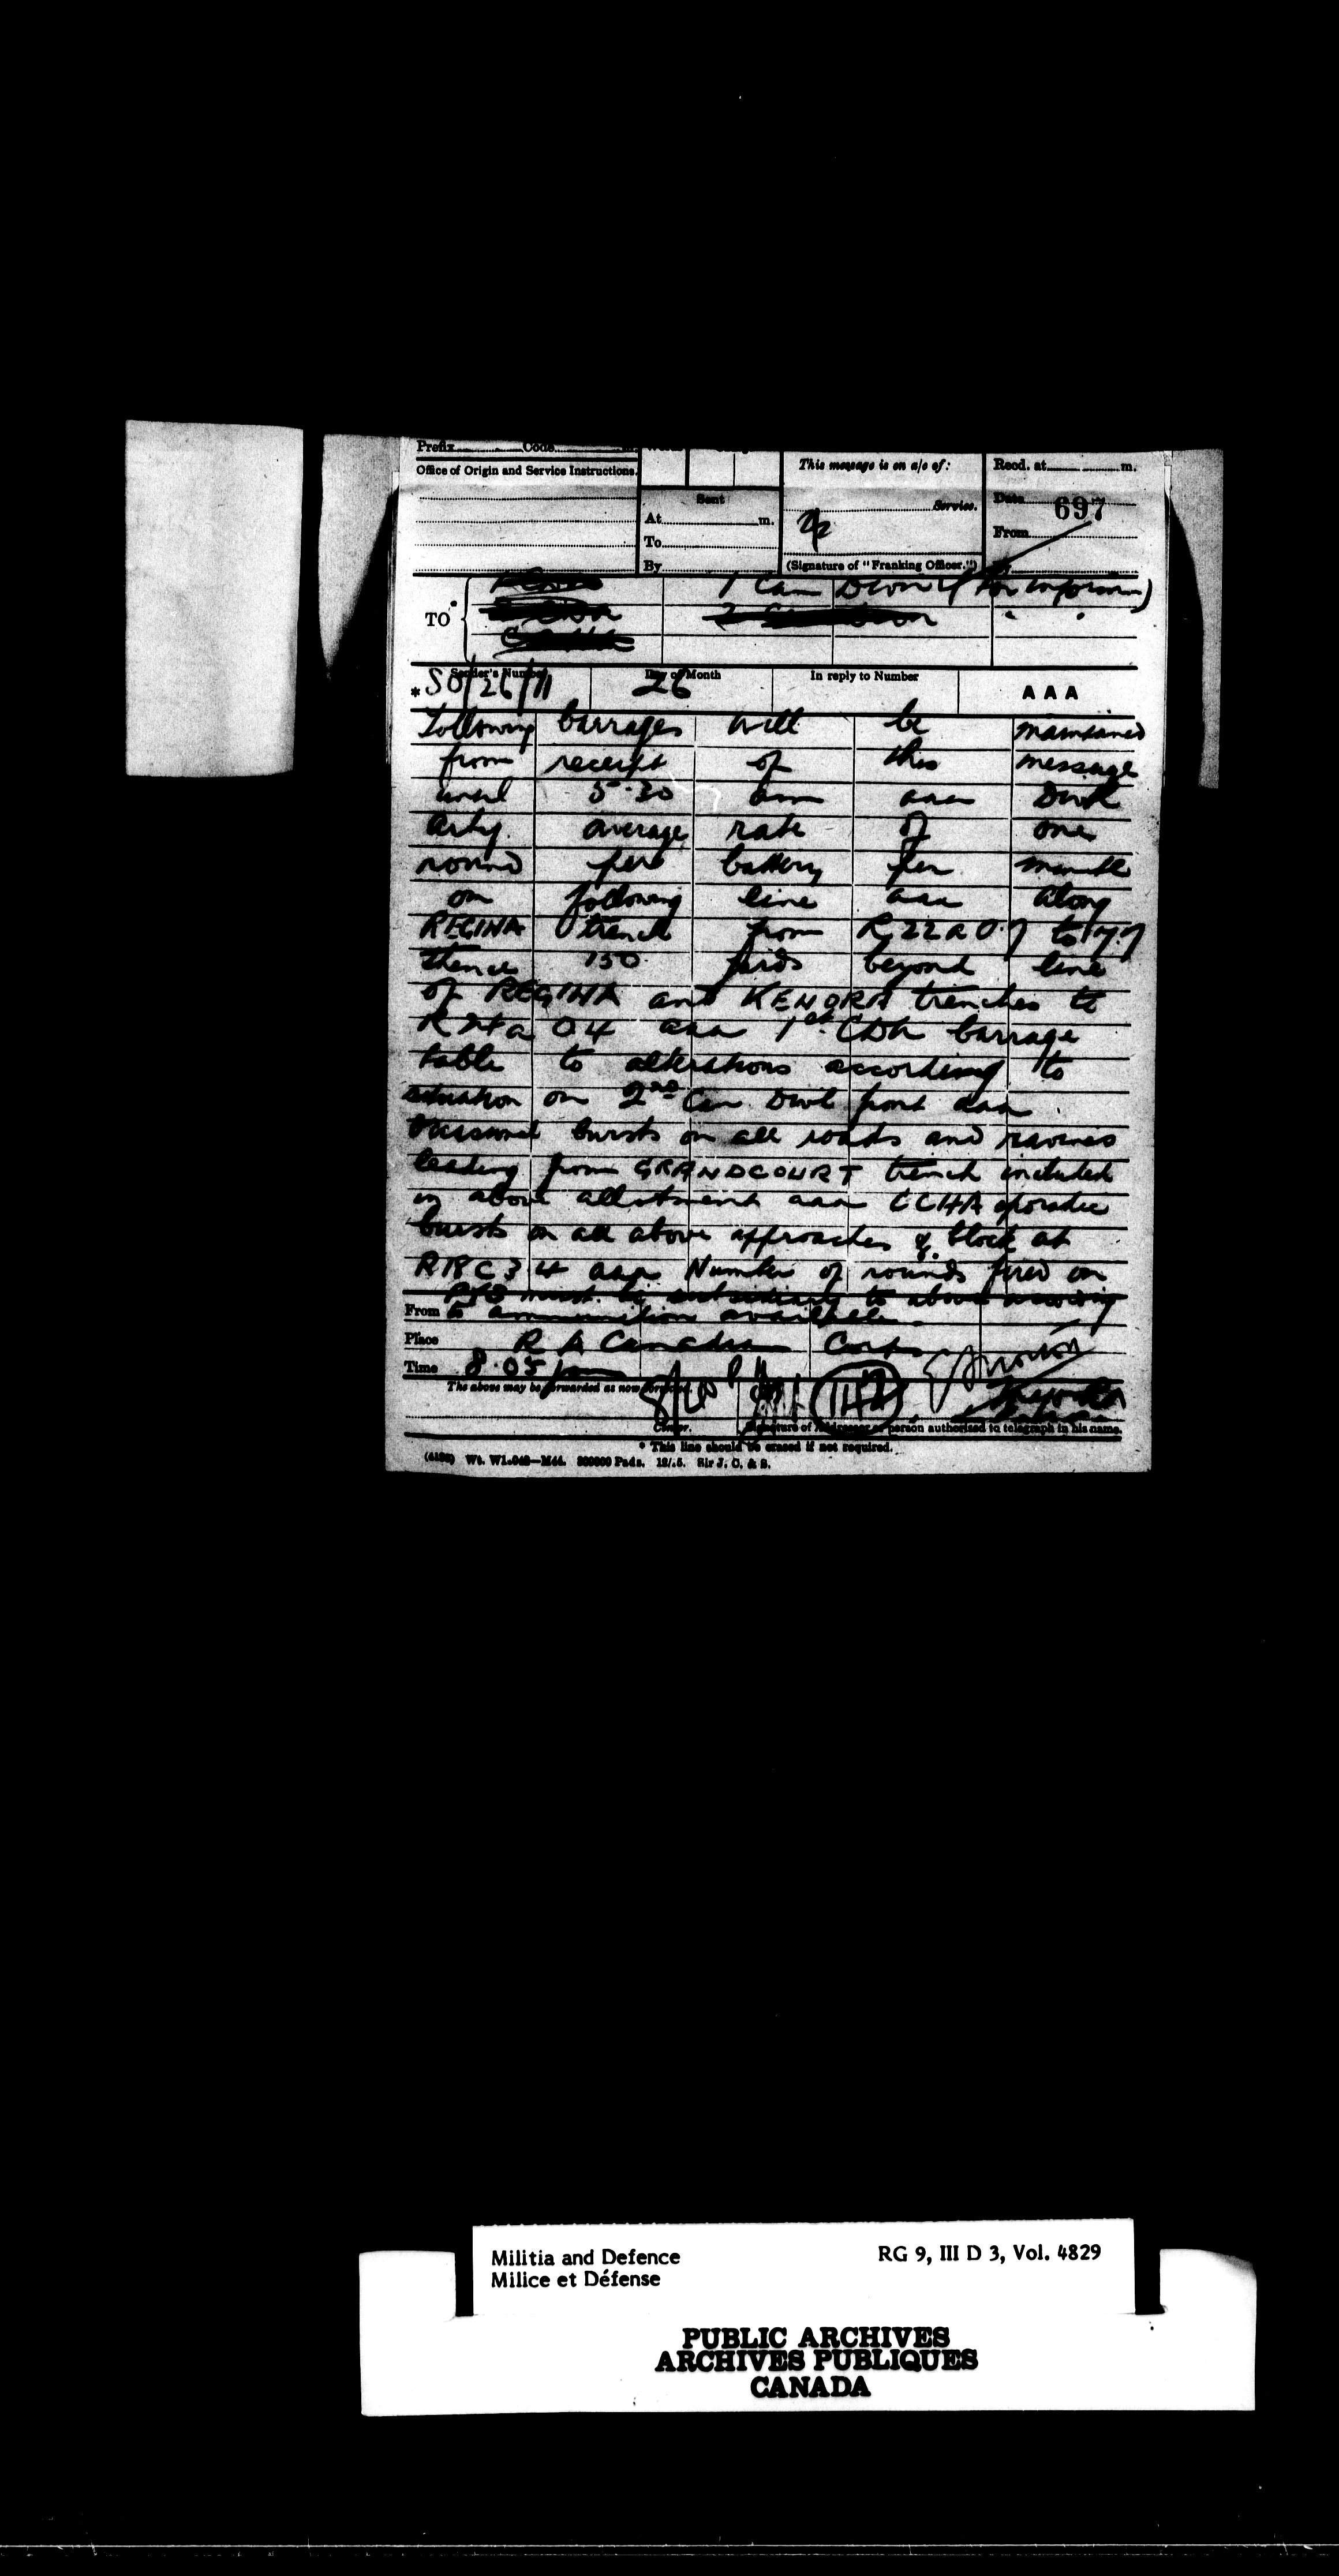 Prefix Code m.
Office of Origin and Service Instructions.
Sent
At m.
To
By
This message is on a/c of:
Service.
(Signature of "Franking Officer.")
Recd. at m.
Date 697
From
TO
1 Can Divn (for inform)
Sender's Number
Day of Month
In reply to Number
* SO/26/11 26 AAA
Following barrages will be maintained
from receipt of this message
until 5.30 am aaa Divl
Arty average rate of one
round per battery per minute
on following line aaa along
REGINA trench from R 22 a 0.7 to 7.7
thence 150 yards beyond line
of REGINA and KENORA trenches to
aaa 1st CDA barrage
table to alterations according to
situation on 2nd Can Divl front aaa
Occasional bursts on all roads and ravines
leading from GRANDCOURT trench included
in above allotment aaa CCHA sporadic
bursts on all above approaches & block at
R18C34 aaa Number of rounds fired on
must be subsidiary to above according
to ammunition available
From
Place R A Canadian Corps
Time 8.05 pm
The above may be forwarded as now
Censor. Signature of Addressor or person authorised to telegraph in his name.
* This line should be erased if not required.
Pads. Sir J. C. & S.
Militia and Defence
Milice et Défense
RG 9, III D 3, Vol. 4829
PUBLIC ARCHIVES
ARCHIVES PUBLIQUES
CANADA